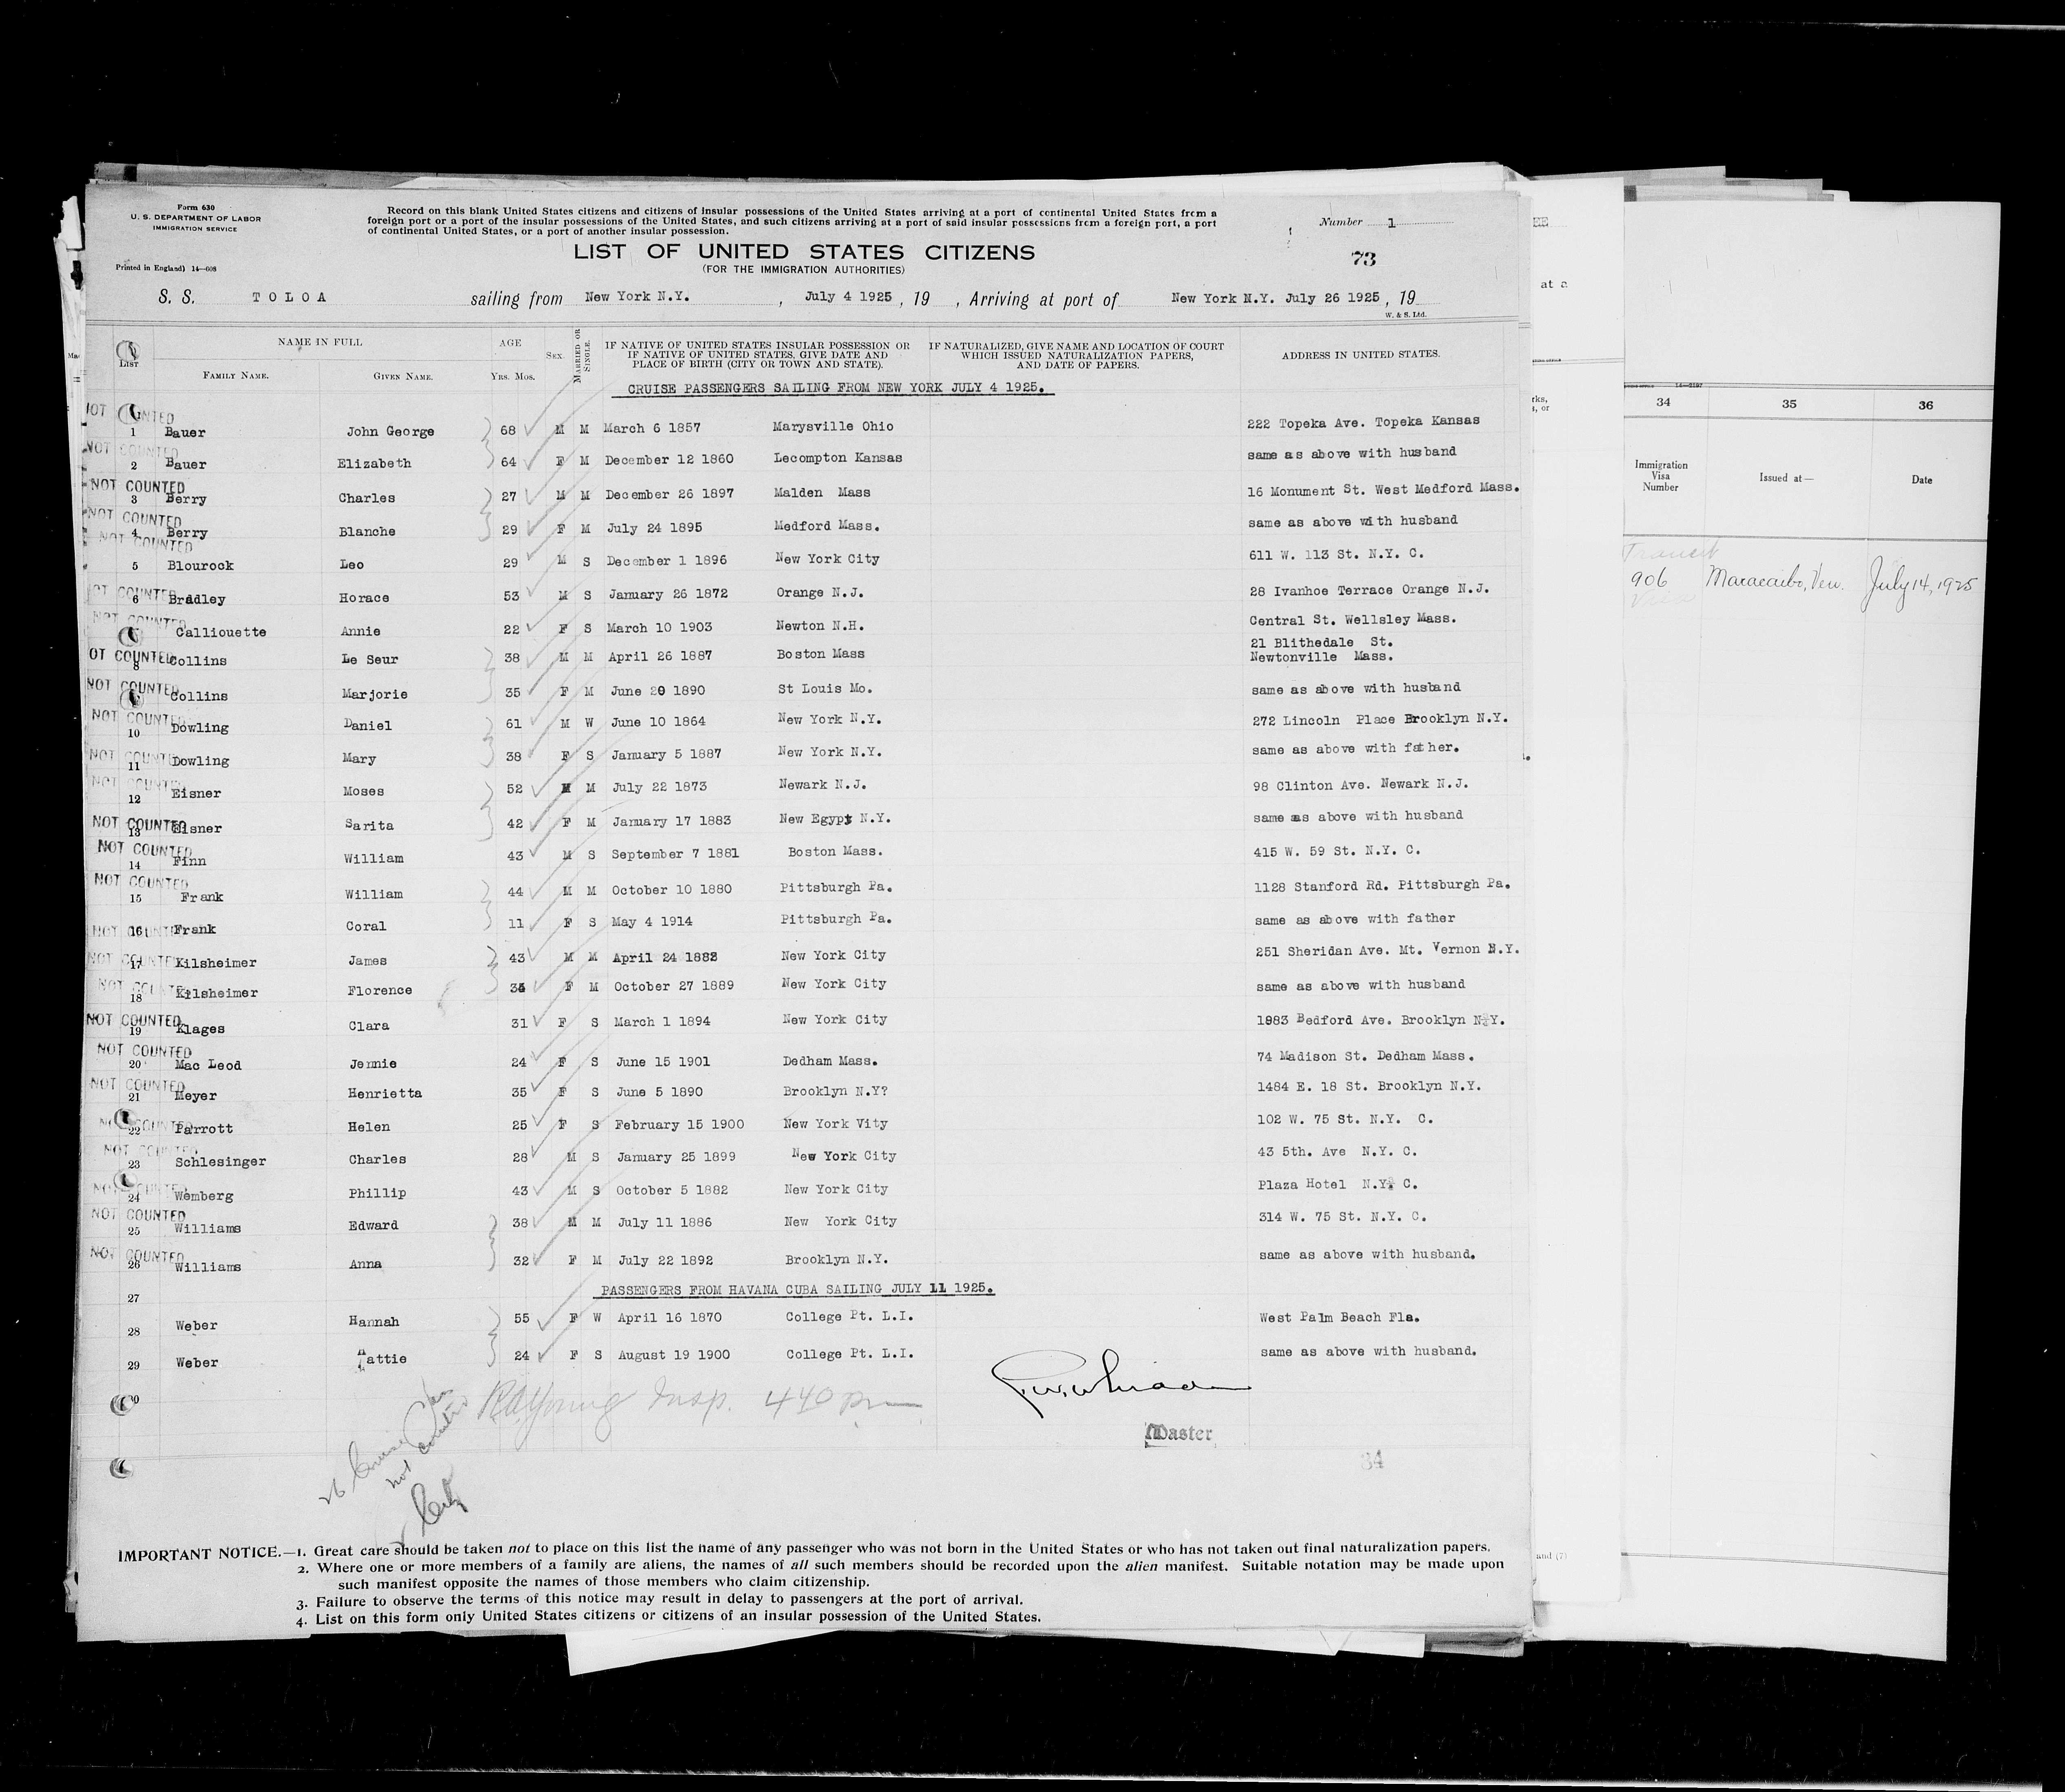 Form 630
U. S. DEPARTMENT OF LABOR
IMMIGRATION SERVICE
Printed in England) 14—608
Record on this blank United States citizens and citizens of insular possessions of the United States arriving at a port of continental United States from a
foreign port or a port of the insular possessions of the United States, and such citizens arriving at a port of said insular possessions from a foreign port, a port
of continental United States, or a port of another insular possession.
Number 1
LIST OF UNITED STATES CITIZENS
(FOR THE IMMIGRATION AUTHORITIES)
73
S. S. TOLOA sailing from New York N.Y. , July 4 1925 , 19 , Arriving at port of New York N.Y. July 26 1925 , 19
W. & S. Ltd.
LIST
NAME IN FULL
FAMILY NAME. GIVEN NAME.
AGE
YRS. MOS.
SEX.
MARRIED OR SINGLE.
IF NATIVE OF UNITED STATES INSULAR POSSESSION OR
IF NATIVE OF UNITED STATES, GIVE DATE AND
PLACE OF BIRTH (CITY OR TOWN AND STATE).
IF NATURALIZED, GIVE NAME AND LOCATION OF COURT
WHICH ISSUED NATURALIZATION PAPERS,
AND DATE OF PAPERS.
ADDRESS IN UNITED STATES.
CRUISE PASSENGERS SAILING FROM NEW YORK JULY 4 1925.
NOT COUNTED 1 Bauer John George 68 M M March 6 1857 Marysville Ohio 222 Topeka Ave. Topeka Kansas
NOT COUNTED 2 Bauer Elizabeth 64 F M December 12 1860 Lecompton Kansas same as above with husband
NOT COUNTED 3 Berry Charles 27 M M December 26 1897 Malden Mass 16 Monument St. West Medford Mass.
NOT COUNTED 4 Berry Blanche 29 F M July 24 1895 Medford Mass. same as above with husband
NOT COUNTED 5 Blourock Leo 29 M S December 1 1896 New York City 611 W. 113 St. N.Y. C.
NOT COUNTED 6 Bradley Horace 53 M S January 26 1872 Orange N.J. 28 Ivanhoe Terrace Orange N.J.
NOT COUNTED Calliouette Annie 22 F S March 10 1903 Newton N.H. Central St. Wellsley Mass.
NOT COUNTED 8 Collins Le Seur 38 M M April 26 1887 Boston Mass 21 Blithedale St.
Newtonville Mass.
NOT COUNTED Collins Marjorie 35 F M June 20 1890 St Louis Mo. same as above with husband
NOT COUNTED 10 Dowling Daniel 61 M W June 10 1864 New York N.Y. 272 Lincoln Place Brooklyn N.Y.
NOT COUNTED 11 Dowling Mary 38 F S January 5 1887 New York N.Y. same as above with father.
NOT COUNTED 12 Eisner Moses 52 M M July 22 1873 Newark N.J. 98 Clinton Ave. Newark N.J.
NOT COUNTED 13 Eisner Sarita 42 F M January 17 1883 New Egypt N.Y. same as above with husband
NOT COUNTED 14 Finn William 43 M S September 7 1881 Boston Mass. 415 W. 59 St. N.Y. C.
NOT COUNTED 15 Frank William 44 M M October 10 1880 Pittsburgh Pa. 1128 Stanford Rd. Pittsburgh Pa.
NOT COUNTED 16 Frank Coral 11 F S May 4 1914 Pittsburgh Pa. same as above with father
NOT COUNTED 17 Kilsheimer James 43 M M April 24 1882 New York City 251 Sheridan Ave. Mt. Vernon N.Y.
NOT COUNTED 18 Kilsheimer Florence F M October 27 1889 New York City same as above with husband
NOT COUNTED 19 Klages Clara 31 F S March 1 1894 New York City 1983 Bedford Ave. Brooklyn N.Y.
NOT COUNTED 20 Mac Leod Jennie 24 F S June 15 1901 Dedham Mass. 74 Madison St. Dedham Mass.
NOT COUNTED 21 Meyer Henrietta 35 F S June 5 1890 Brooklyn N.Y? 1484 E. 18 St. Brooklyn N.Y.
NOT COUNTED 22 Parrott Helen 25 F S February 15 1900 New York Vity 102 W. 75 St. N.Y. C.
NOT COUNTED 23 Schlesinger Charles 28 M S January 25 1899 New York City 43 5th. Ave N.Y. C.
NOT COUNTED 24 Wemberg Phillip 43 M S October 5 1882 New York City Plaza Hotel N.Y. C.
NOT COUNTED 25 Williams Edward 38 M M July 11 1886 New York City 314 W. 75 St. N.Y. C.
NOT COUNTED 26 Williams Anna 32 F M July 22 1892 Brooklyn N.Y. same as above with husband.
27 PASSENGERS FROM HAVANA CUBA SAILING JULY 11 1925.
28 Weber Hannah 55 F W April 16 1870 College Pt. L.I. West Palm Beach Fla.
29 Weber Hattie 24 F S August 19 1900 College Pt. L.I. same as above with husband.
30
RA Young Insp. 440 pm
Master
34
26 Cruise
not counted
IMPORTANT NOTICE.—1. Great care should be taken not to place on this list the name of any passenger who was not born in the United States or who has not taken out final naturalization papers.
2. Where one or more members of a family are aliens, the names of all such members should be recorded upon the alien manifest. Suitable notation may be made upon
such manifest opposite the names of those members who claim citizenship.
3. Failure to observe the terms of this notice may result in delay to passengers at the port of arrival.
4. List on this form only United States citizens or citizens of an insular possession of the United States.
at a
and (7)
34 35 36
Immigration
Visa
Number
Issued at—
Date
Transit
906 Maracaibo, Ven. July 14, 1925
Visa